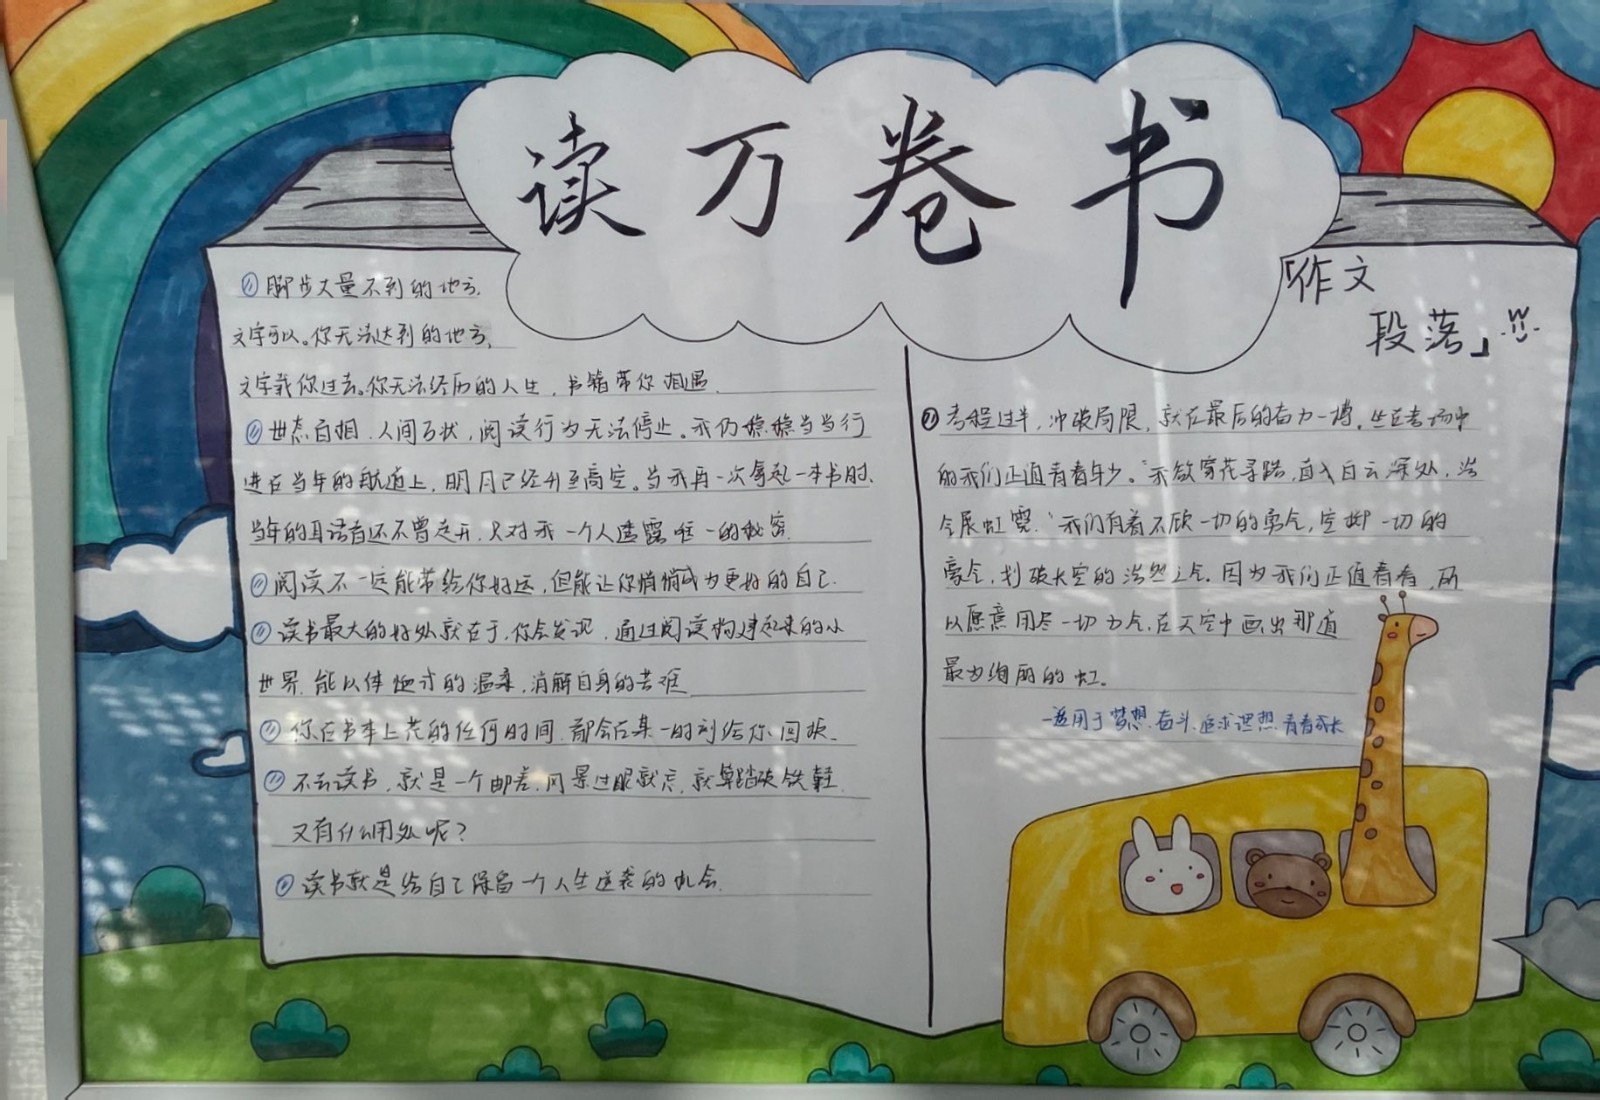 读万卷书
脚步丈量不到的地方,
文字可以。你无法达到的地方,
文字载你过去。你无法经历的人生,书籍带你相遇.
世态百相,人间百状,阅读行为无法停止。我仍稳稳当当行
进在当年的航道上,明月已经升至高空。当我再一次拿起一本书时,
当年的耳语者还不曾走开,只对我一个人透露唯一的秘密.
阅读不一定能带给你好运,但能让你悄悄成为更好的自己.
读书最大的好处就在于,你会发现,通过阅读构建起来的小
世界,能以体细寸的温柔,消解自身的苦难
你在书本上花的任何时间,都会在某一时刻给你回报.
不去读书,就是一个邮差,风景过眼就忘,就算踏破铁鞋,
又有什么用处呢?
读书就是给自己保留一个人生逆袭的机会.
「作文
段落」
考程过半,冲破局限,就在最后的奋力一搏,坐在考场中
的我们正值青春年少。“我欲穿花寻路,直入白云深处,浩
气展虹霓.”我们有着不顾一切的勇气,空抛一切的
豪气,划破长空的浩然之气.因为我们正值青春,所
以愿意用尽一切力气,在天空中画出那道
最为绚丽的虹。
—适用于梦想.奋斗.追求理想.青春成长